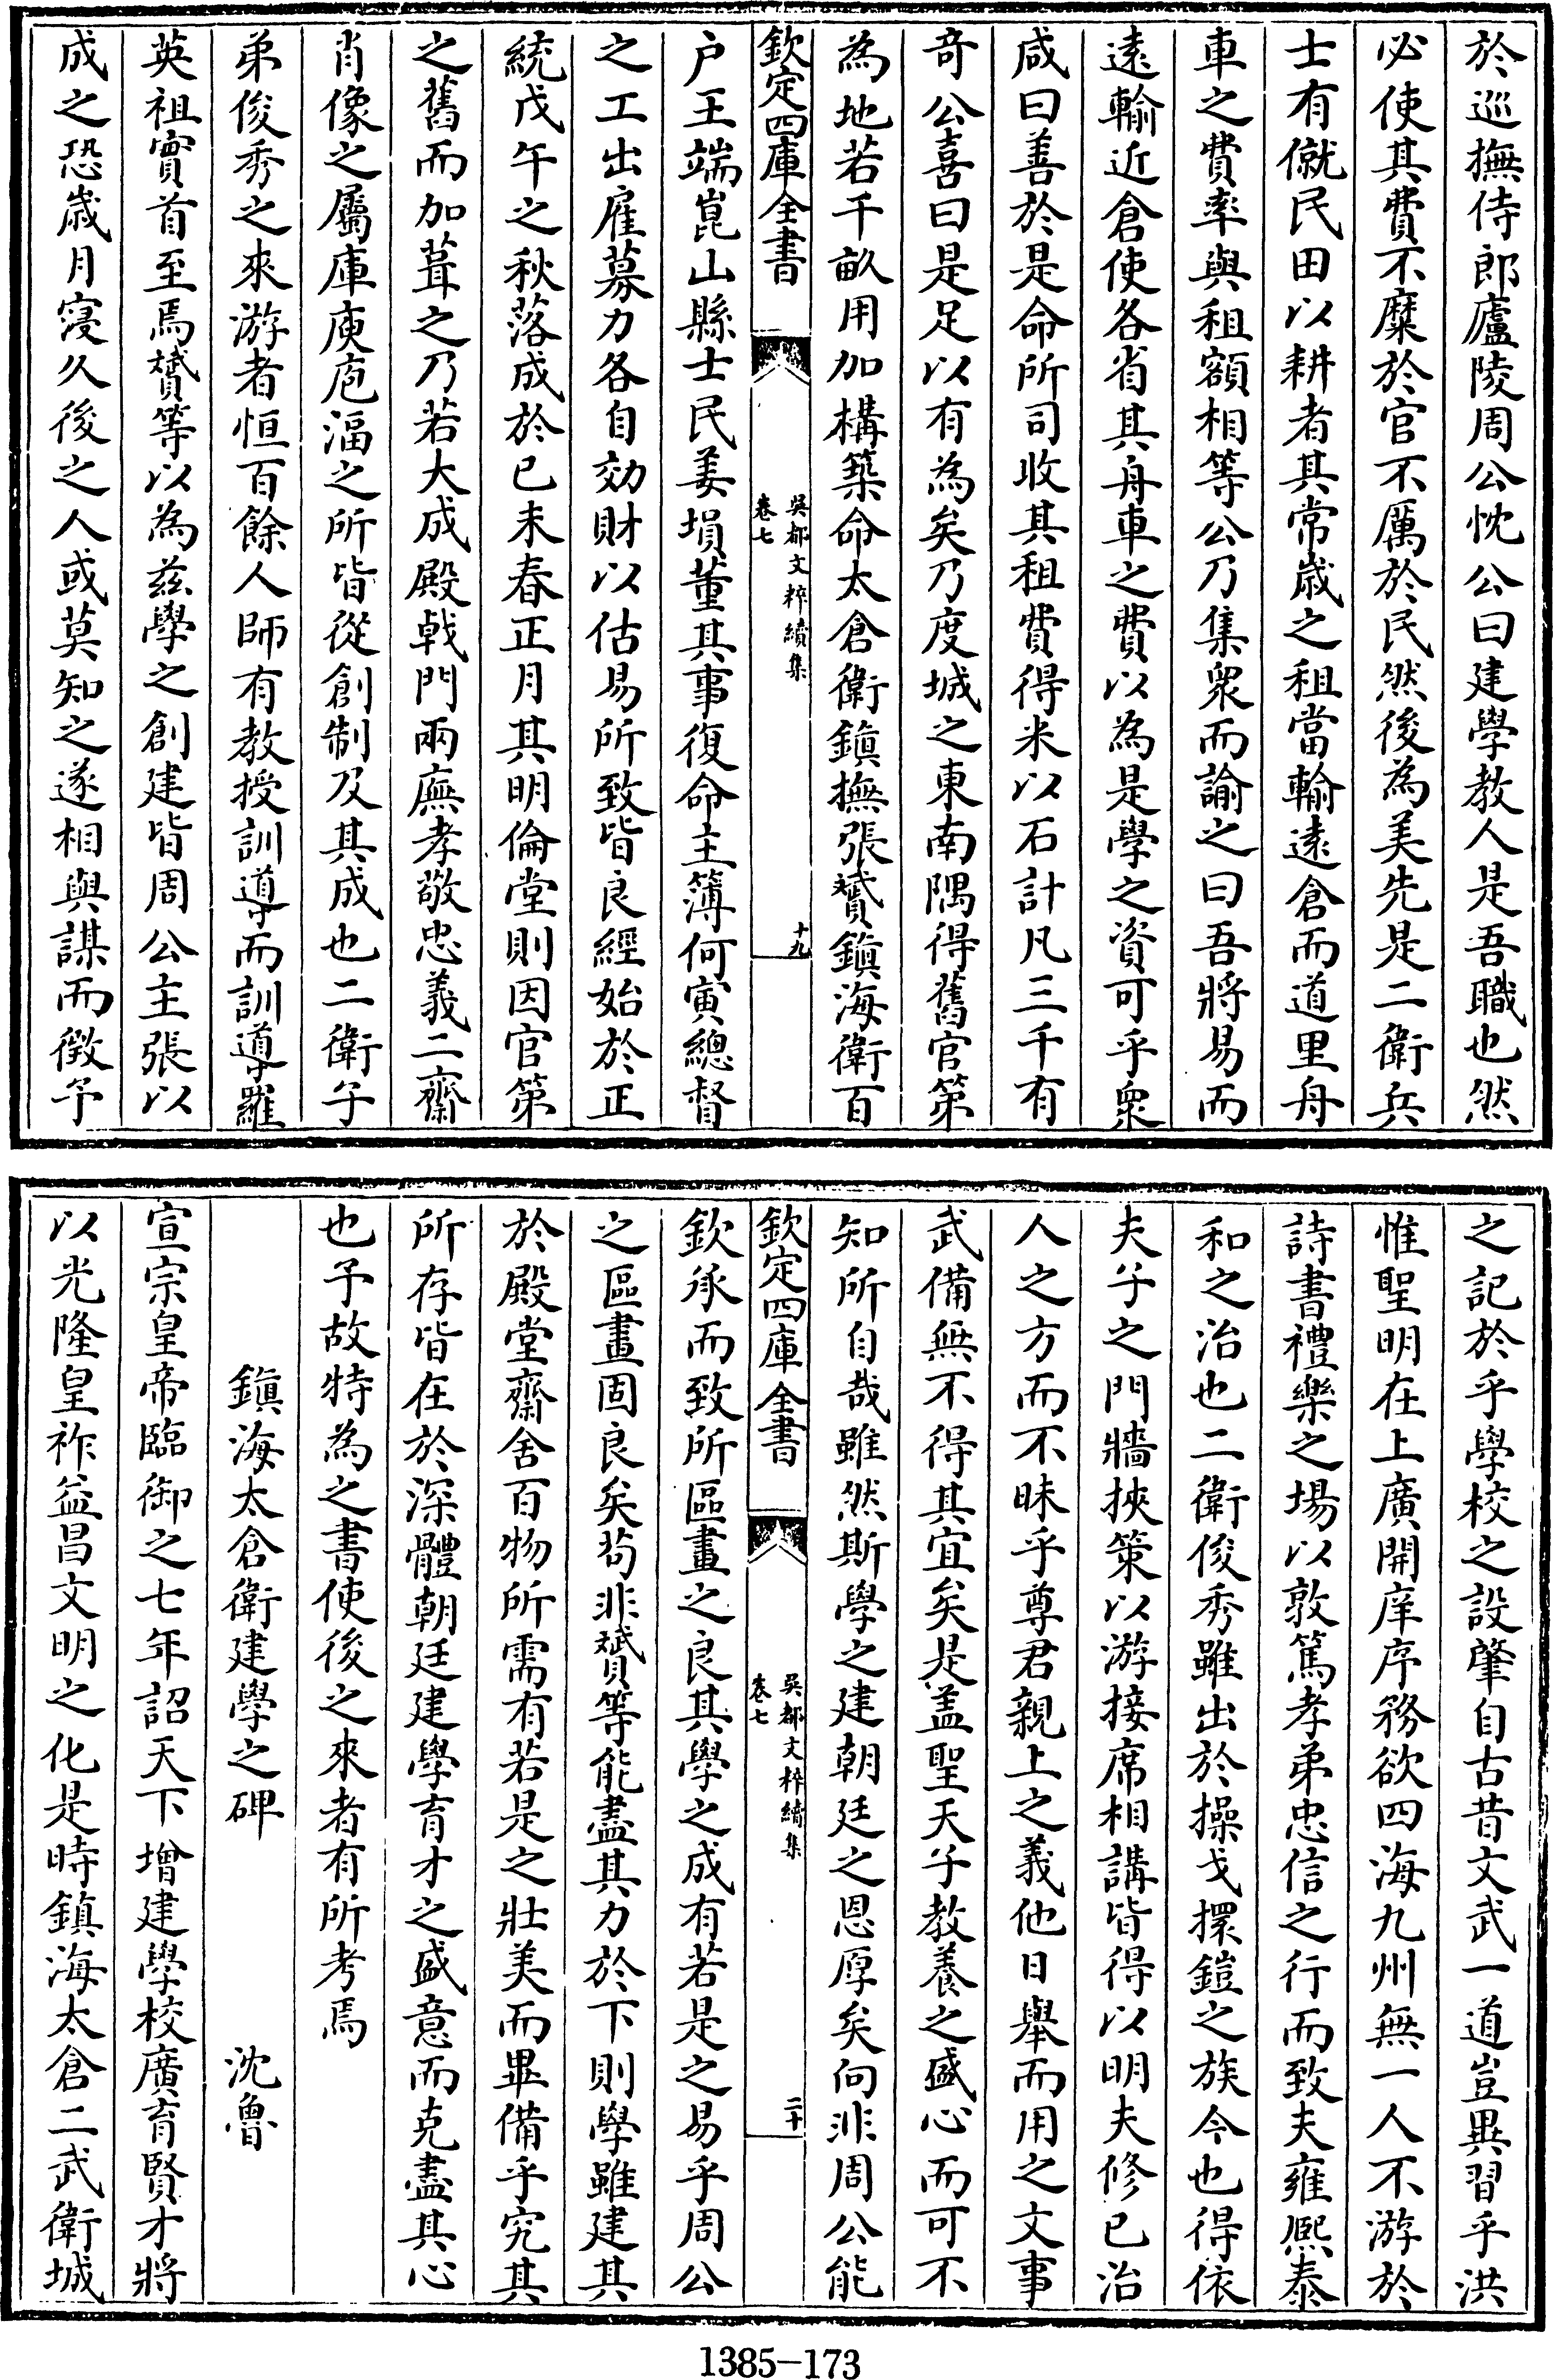 於巡撫侍郎廬陵周公忱公曰建學教人是吾職也然
必使其費不糜於官不厲於民然後為美先是二衛兵
士有僦民田以耕者其常歲之租當輸遠倉而道里舟
車之費率與租額相等公乃集衆而諭之曰吾將易而
遠輸近倉使各省其舟車之費以為是學之資可乎衆
咸曰善於是命所司收其租費得米以石計凡三千有
奇公喜曰是足以有為矣乃度城之東南隅得舊官第
為地若干畝用加構築命太倉衛鎮撫張贇鎮海衛百
欽定四庫全書
吳都文粹續集
卷七
十九
户王端崑山縣士民姜塤董其事復命主簿何寅總督
之工出雇募力各自効財以估易所致皆良經始於正
統戊午之秋落成於已未春正月其明倫堂則因官第
之舊而加葺之乃若大成殿戟門兩廡孝敬忠義二齋
肖像之屬庫庾庖湢之所皆從創制及其成也二衛子
弟俊秀之來游者恒百餘人師有教授訓導而訓導羅
英祖實首至焉贇等以為兹學之創建皆周公主張以
成之恐歲月寖久後之人或莫知之遂相與謀而徵予
之記於乎學校之設肇自古昔文武一道豈異習乎洪
惟聖明在上廣開庠序務欲四海九州無一人不游於
詩書禮樂之場以敦篤孝弟忠信之行而致夫雍熙泰
和之治也二衛俊秀雖出於操戈擐鎧之族今也得依
夫子之門牆挾策以游接席相講皆得以明夫修已治
人之方而不昧乎尊君親上之義他日舉而用之文事
武備無不得其宜矣是盖聖天子教養之盛心而可不
知所自哉雖然斯學之建朝廷之恩厚矣向非周公能
欽定四庫全書
吳都文粹續集
卷七
二十
欽承而致所區畫之良其學之成有若是之易乎周公
之區畫固良矣茍非贇等能盡其力於下則學雖建其
於殿堂齋舍百物所需有若是之壯美而畢備乎究其
所存皆在於深體朝廷建學育才之盛意而克盡其心
也予故特為之書使後之來者有所考焉
鎮海太倉衛建學之碑
沈魯
宣宗皇帝臨御之七年詔天下增建學校廣育賢才將
以光隆皇祚益昌文明之化是時鎮海太倉二武衛城
1385-173